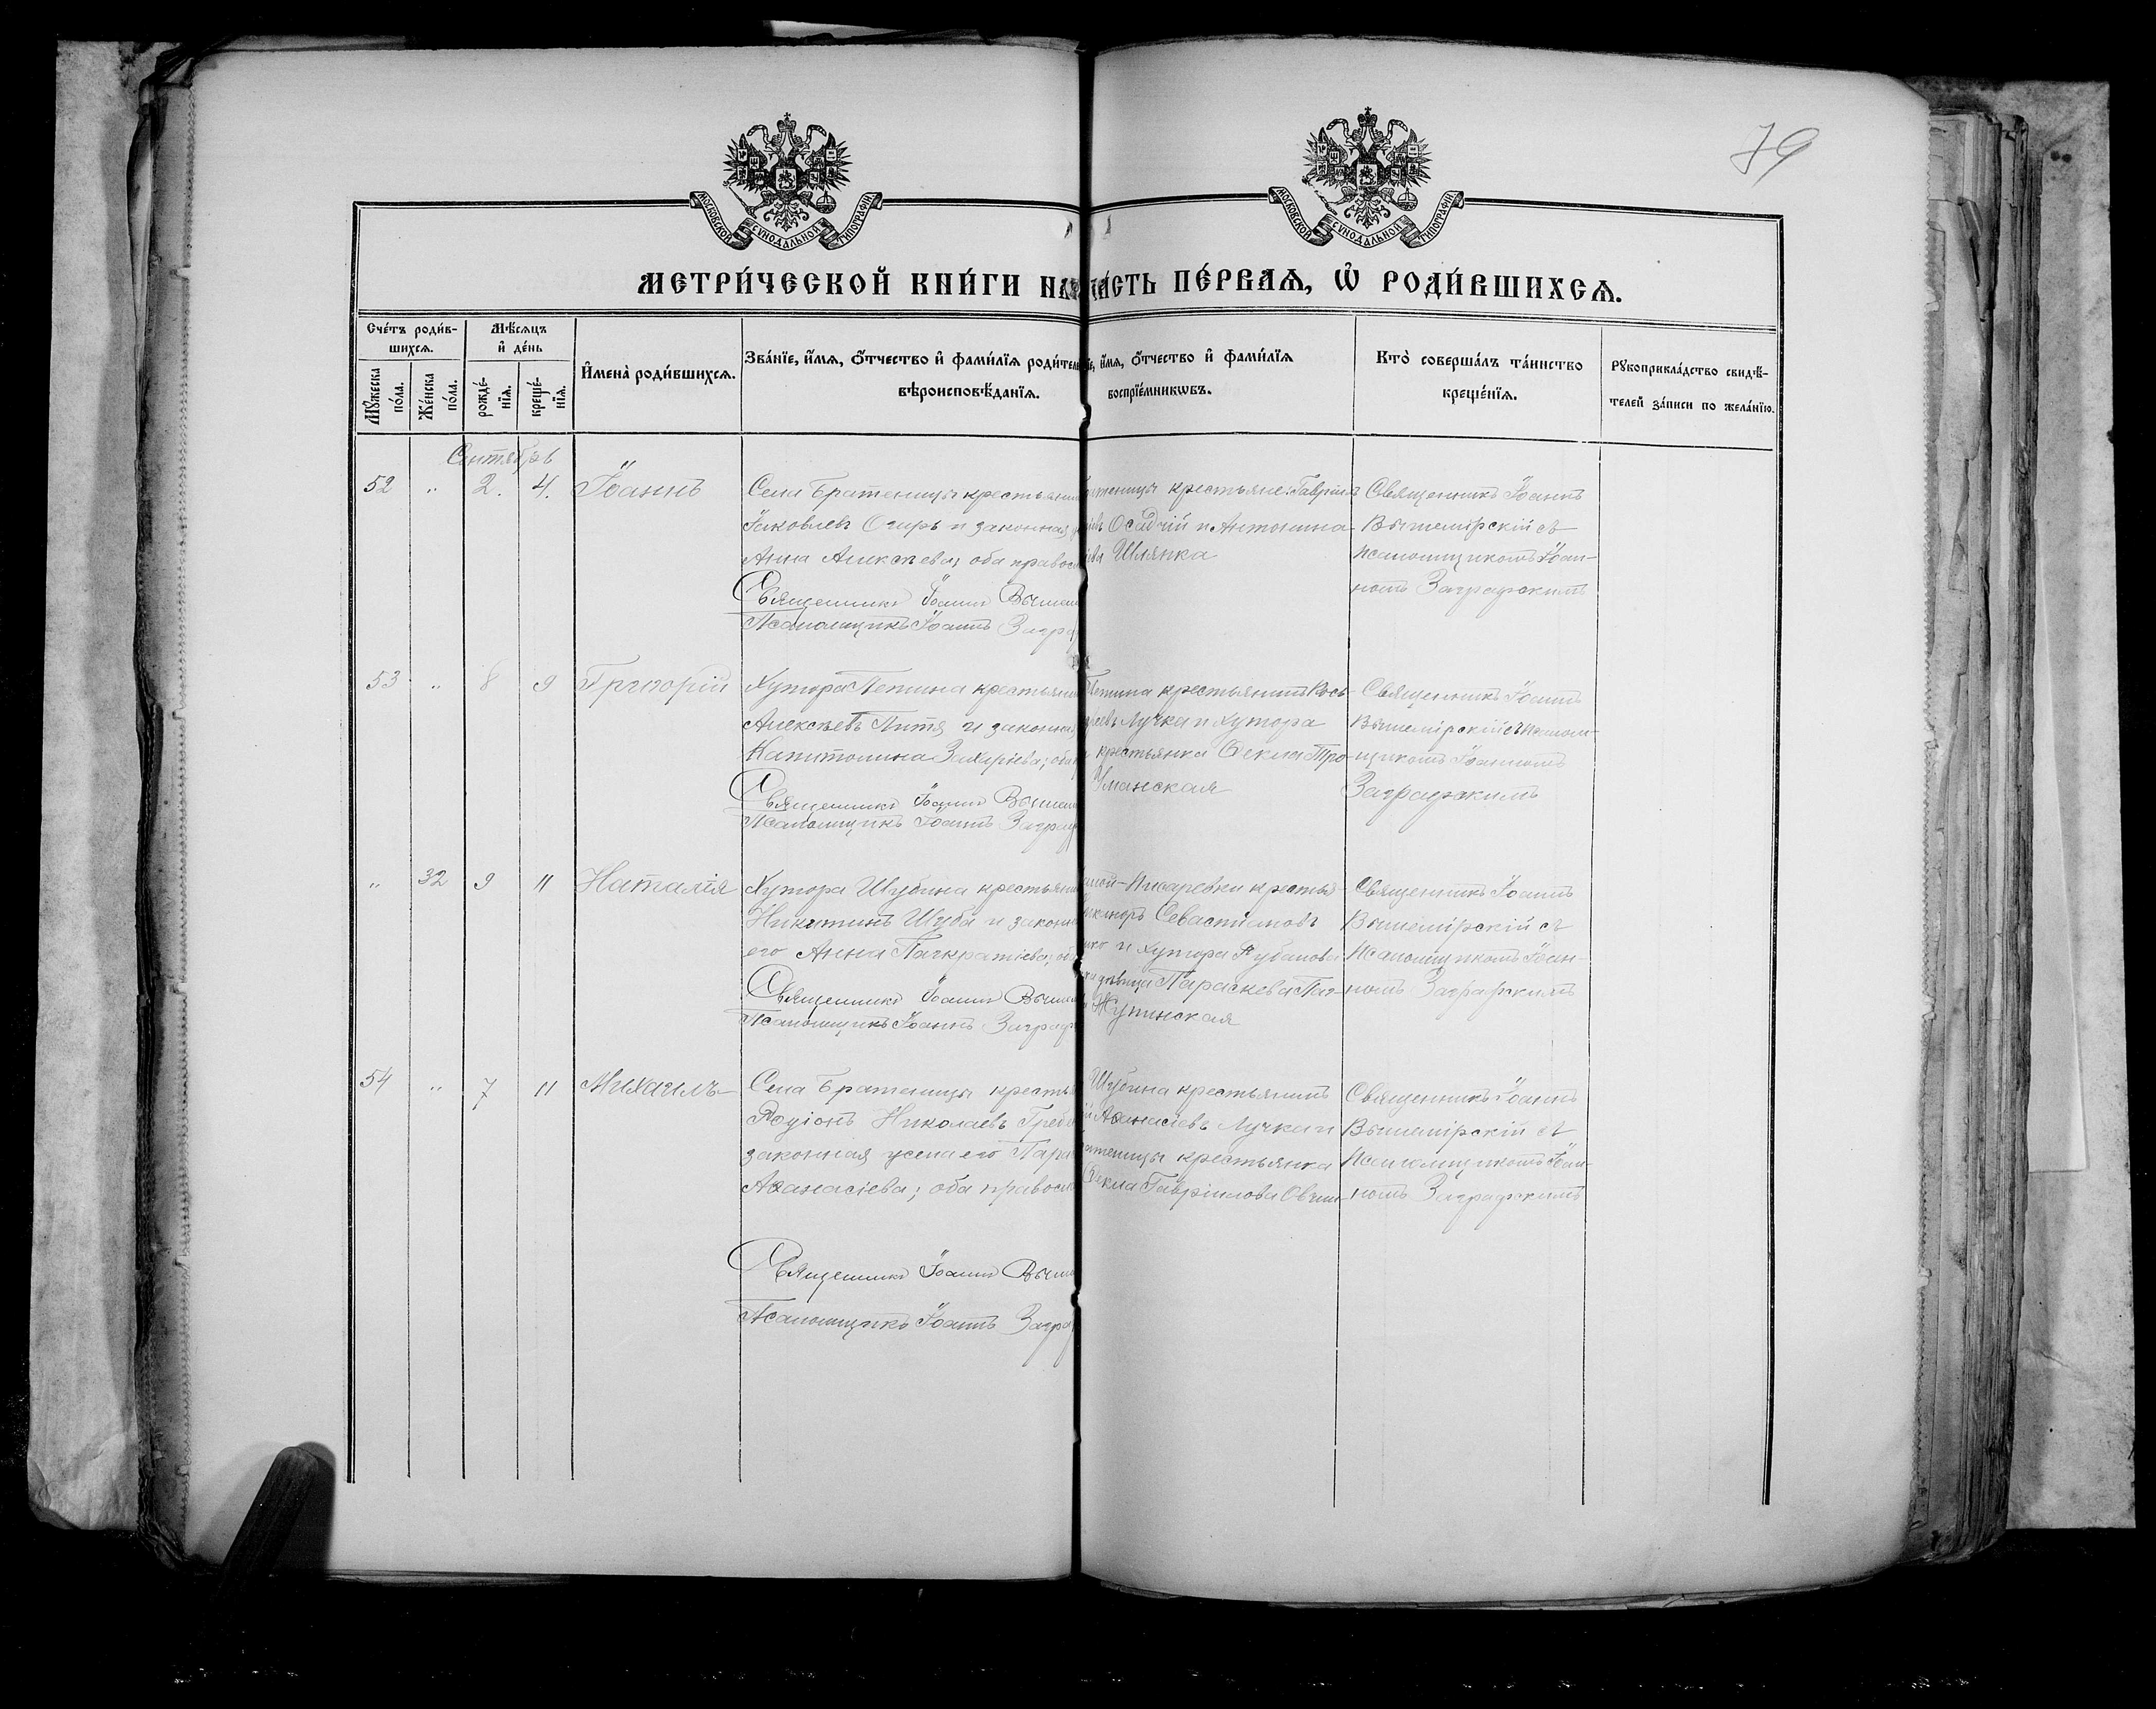 79
МОСКОВСКОЙ СУНОДАЛЬНОЙ ТИПОГРАФІИ
МОСКОВСКОЙ СУНОДАЛЬНОЙ ТИПОГРАФІИ
МЕТРИ́ЧЕСКОЙ КНИ́ГИ НА
ЧА́СТЬ ПЕ́РВАѦ, Ѽ РОДИ́ВШИХСѦ.
Сче́тъ роди́в-
шихсѧ.
Мꙋ́жеска по́ла.
Же́нска по́ла.
Мѣ́сѧцъ
и҆ де́нь
рожде́-
нїѧ.
креще́-
нїѧ.
И҆мена̀ роди́вшихсѧ.
Зва́нїе, и҆́мѧ, ѻ҆́тчество и҆ фами́лїѧ роди́тел
вѣроисповѣ́данїѧ.
їе, и҆́мѧ, ѻ҆́тчество и҆ фами́лїѧ
воспрїе́мникѡвъ.
Кто̀ соверша́лъ та́инство
креще́нїѧ.
Рꙋкоприкла́дство свидѣ́-
телей за́писи по жела́нїю.
Сентябрь
52 " 2. 4. Іоаннъ
Села Братеницы крестьянин
Іаковлевъ Огирь и законная
Анна Алексѣева; оба правос
Священникъ Іоаннъ Вышем
Псаломщикъ Іоаннъ Заграф
атеницы крестьяне: Гавріилъ
Осадчій и Антонина
Шлянка
Священникъ Іоаннъ
Вышемірскій съ
псаломщикомъ Іоан-
номъ Заграфскимъ
53 " 8 9 Григорій
Хутора Петина крестьянин
Алексѣевъ Питя и законная
Капитолина Захаріева; оба
Священникъ Іоаннъ Вышем
Псаломщикъ Іоаннъ Заграф
Петина крестьянинъ Кось-
Лучка и хутора
крестьянка Ѳекла Тро-
Уманская
Священникъ Іоаннъ
Вышемірскій съ псалом-
щикомъ Іоанномъ
Заграфскимъ
" 32 9 11 Наталія
Хутора Шубина крестьянин
Никитинъ Шуба и законн
его Анна Панкратіева; оба
Священникъ Іоаннъ Вышем
Псаломщикъ Іоаннъ Заграф
Писаревки крестья-
Севастіановъ
и хутора Рубанова
дѣвица Параскева Пан-
Жупинская
Священникъ Іоаннъ
Вышемірскій съ
псаломщикомъ Іоан-
номъ Заграфскимъ
54 " 7 11 Михаилъ
Села Братеницы кресть
Родіонъ Николаевъ Греб
законная жена его Пара
Аѳанасіева; оба правосл
Священникъ Іоаннъ Выш
Псаломщикъ Іоаннъ Загра
Шубина крестьянинъ
Аѳанасіевъ Лучка и
атеницы крестьянка
Ѳекла Гавріилова Овчин-
Священникъ Іоаннъ
Вышемірскій съ
псаломщикомъ Іоан-
номъ Заграфскимъ